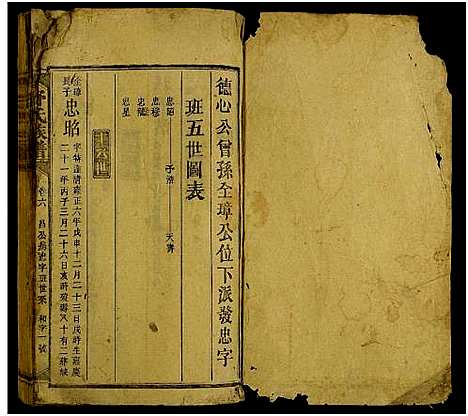 德心公曾孫全璋公位下派發忠字
班五世圖表
忠昭——子濟——天壽
忠穆
忠耀
忠星
全璋
長子
忠昭
字特達清雍正六年戊申十二月二十三日戌時生嘉慶
二十一年丙子三月二十六日亥時歿壽八十有二葬峽
氏族譜
卷六
昌公房忠字班世系
和字一號